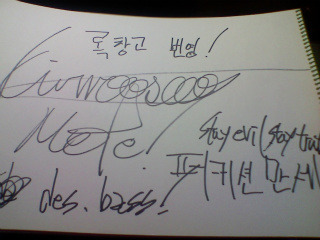 록창고 번영!
More!
stay evil stay true
퍼커션 만세
des. bass!